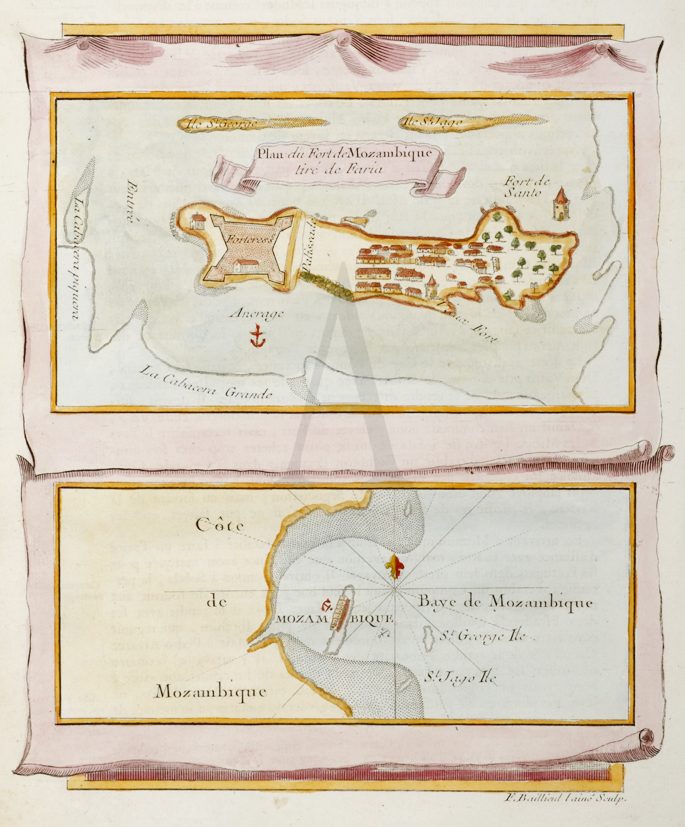 Ile St. George
Ile St. Jago
Plan du Fort de Mozambique
tiré de Faria
Fort de
Santo
Entrée
La Cabacera piquera
Forteresse
Palissade
Ancrage
Vieux Fort
La Cabacera Grande
Côte
de
Mozambique
MOZAMBIQUE
Baye de Mozambique
St. George Ile
St. Jago Ile
F. Baillieul l'ainé Sculp.